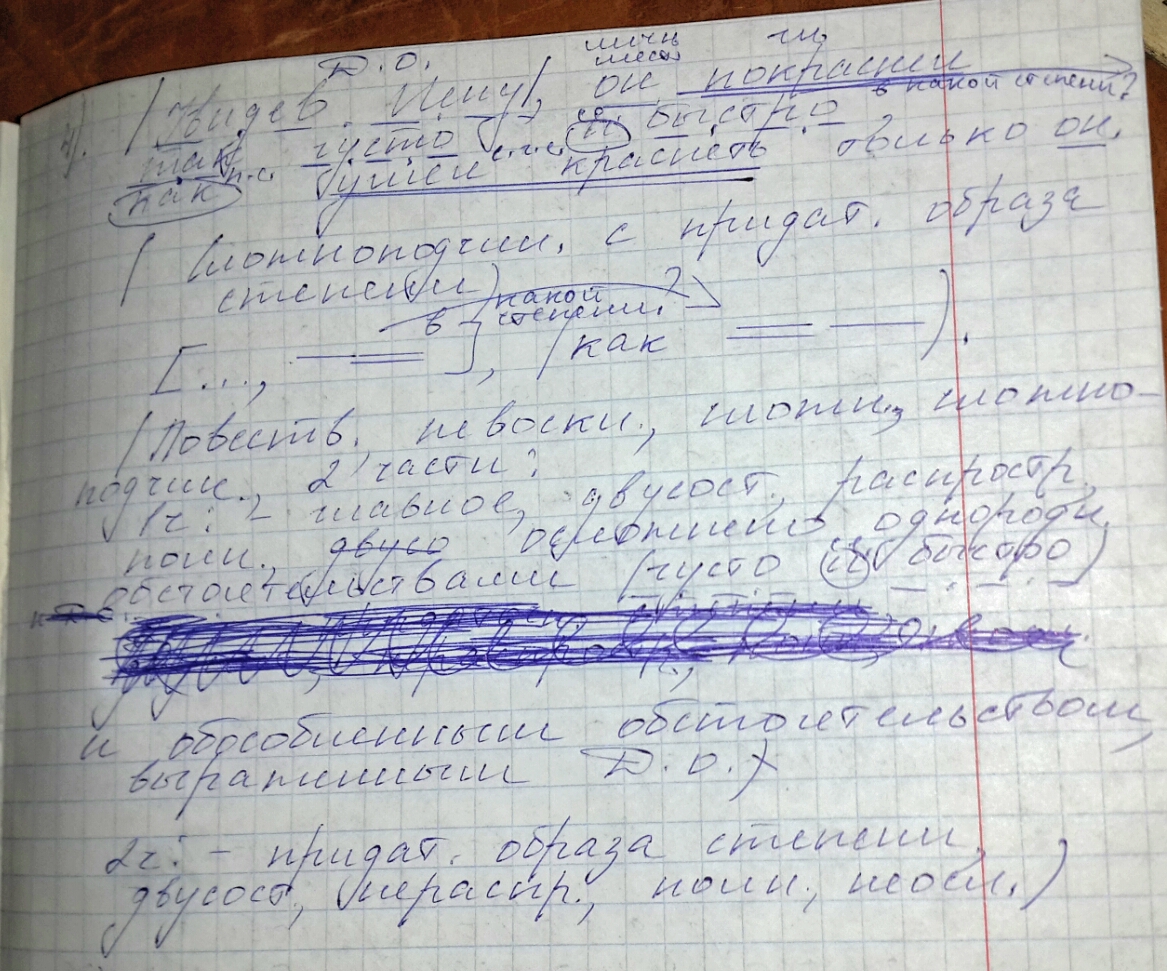 Д.О. личн. мест. гл.
4). |Увидев Цецу|, он покраснел
так густо и быстро в какой степени?
как п.с. с.с. умел краснеть только он.
(Сложноподчин. с придат. образа
степени) в какой степени?
[..., ], (как ).
(Повеств. невоскл., сложн., сложно-
подчин., 2 части:
1ч: - главное, двусост., распростр.,
полн., двусо осложнено однородн.
обстоятельствами (густо и быстро)
и обособленным обстоятельством,
выраженным Д.О.)
2ч: - придат. образа степени,
двусост, нераспр., полн., неосл.)